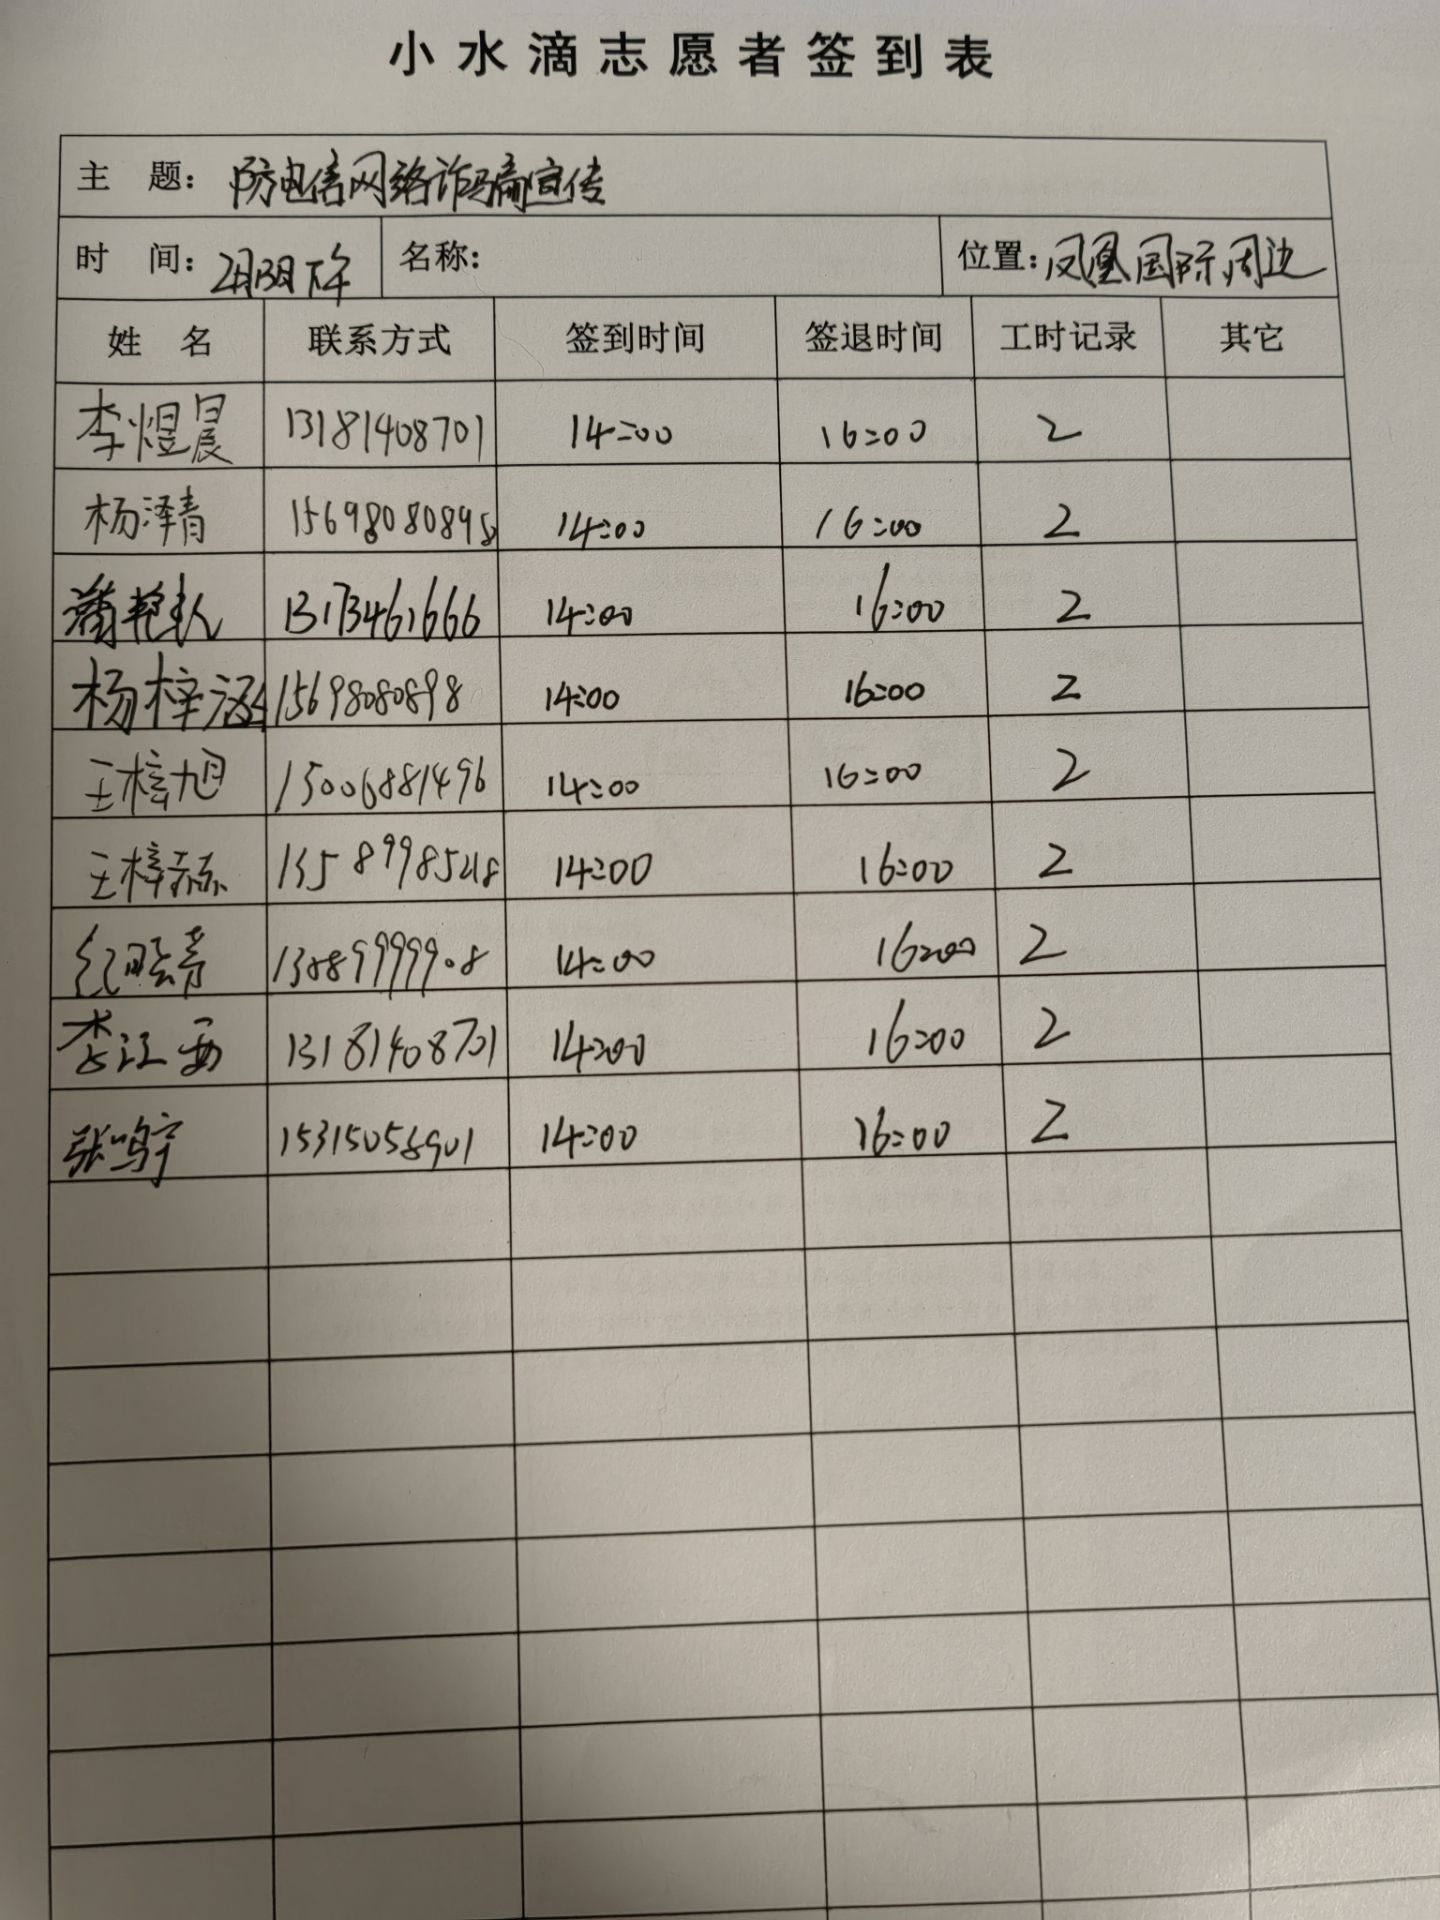 小水滴志愿者签到表
主 题： 防电信网络诈骗宣传
时 间： 下午 名称： 位置：凤凰国际周边
姓 名 联系方式 签到时间 签退时间 工时记录 其它
李煜晨 13181408701 14:00 16:00 2
杨泽青 15698080898 14:00 16:00 2
13173461666 14:00 16:00 2
杨梓涵 15698080898 14:00 16:00 2
王梓旭 15006881496 14:00 16:00 2
王梓赫 14:00 16:00 2
14:00 16:00 2
李江西 13181408701 14:00 16:00 2
张鸣宇 14:00 16:00 2